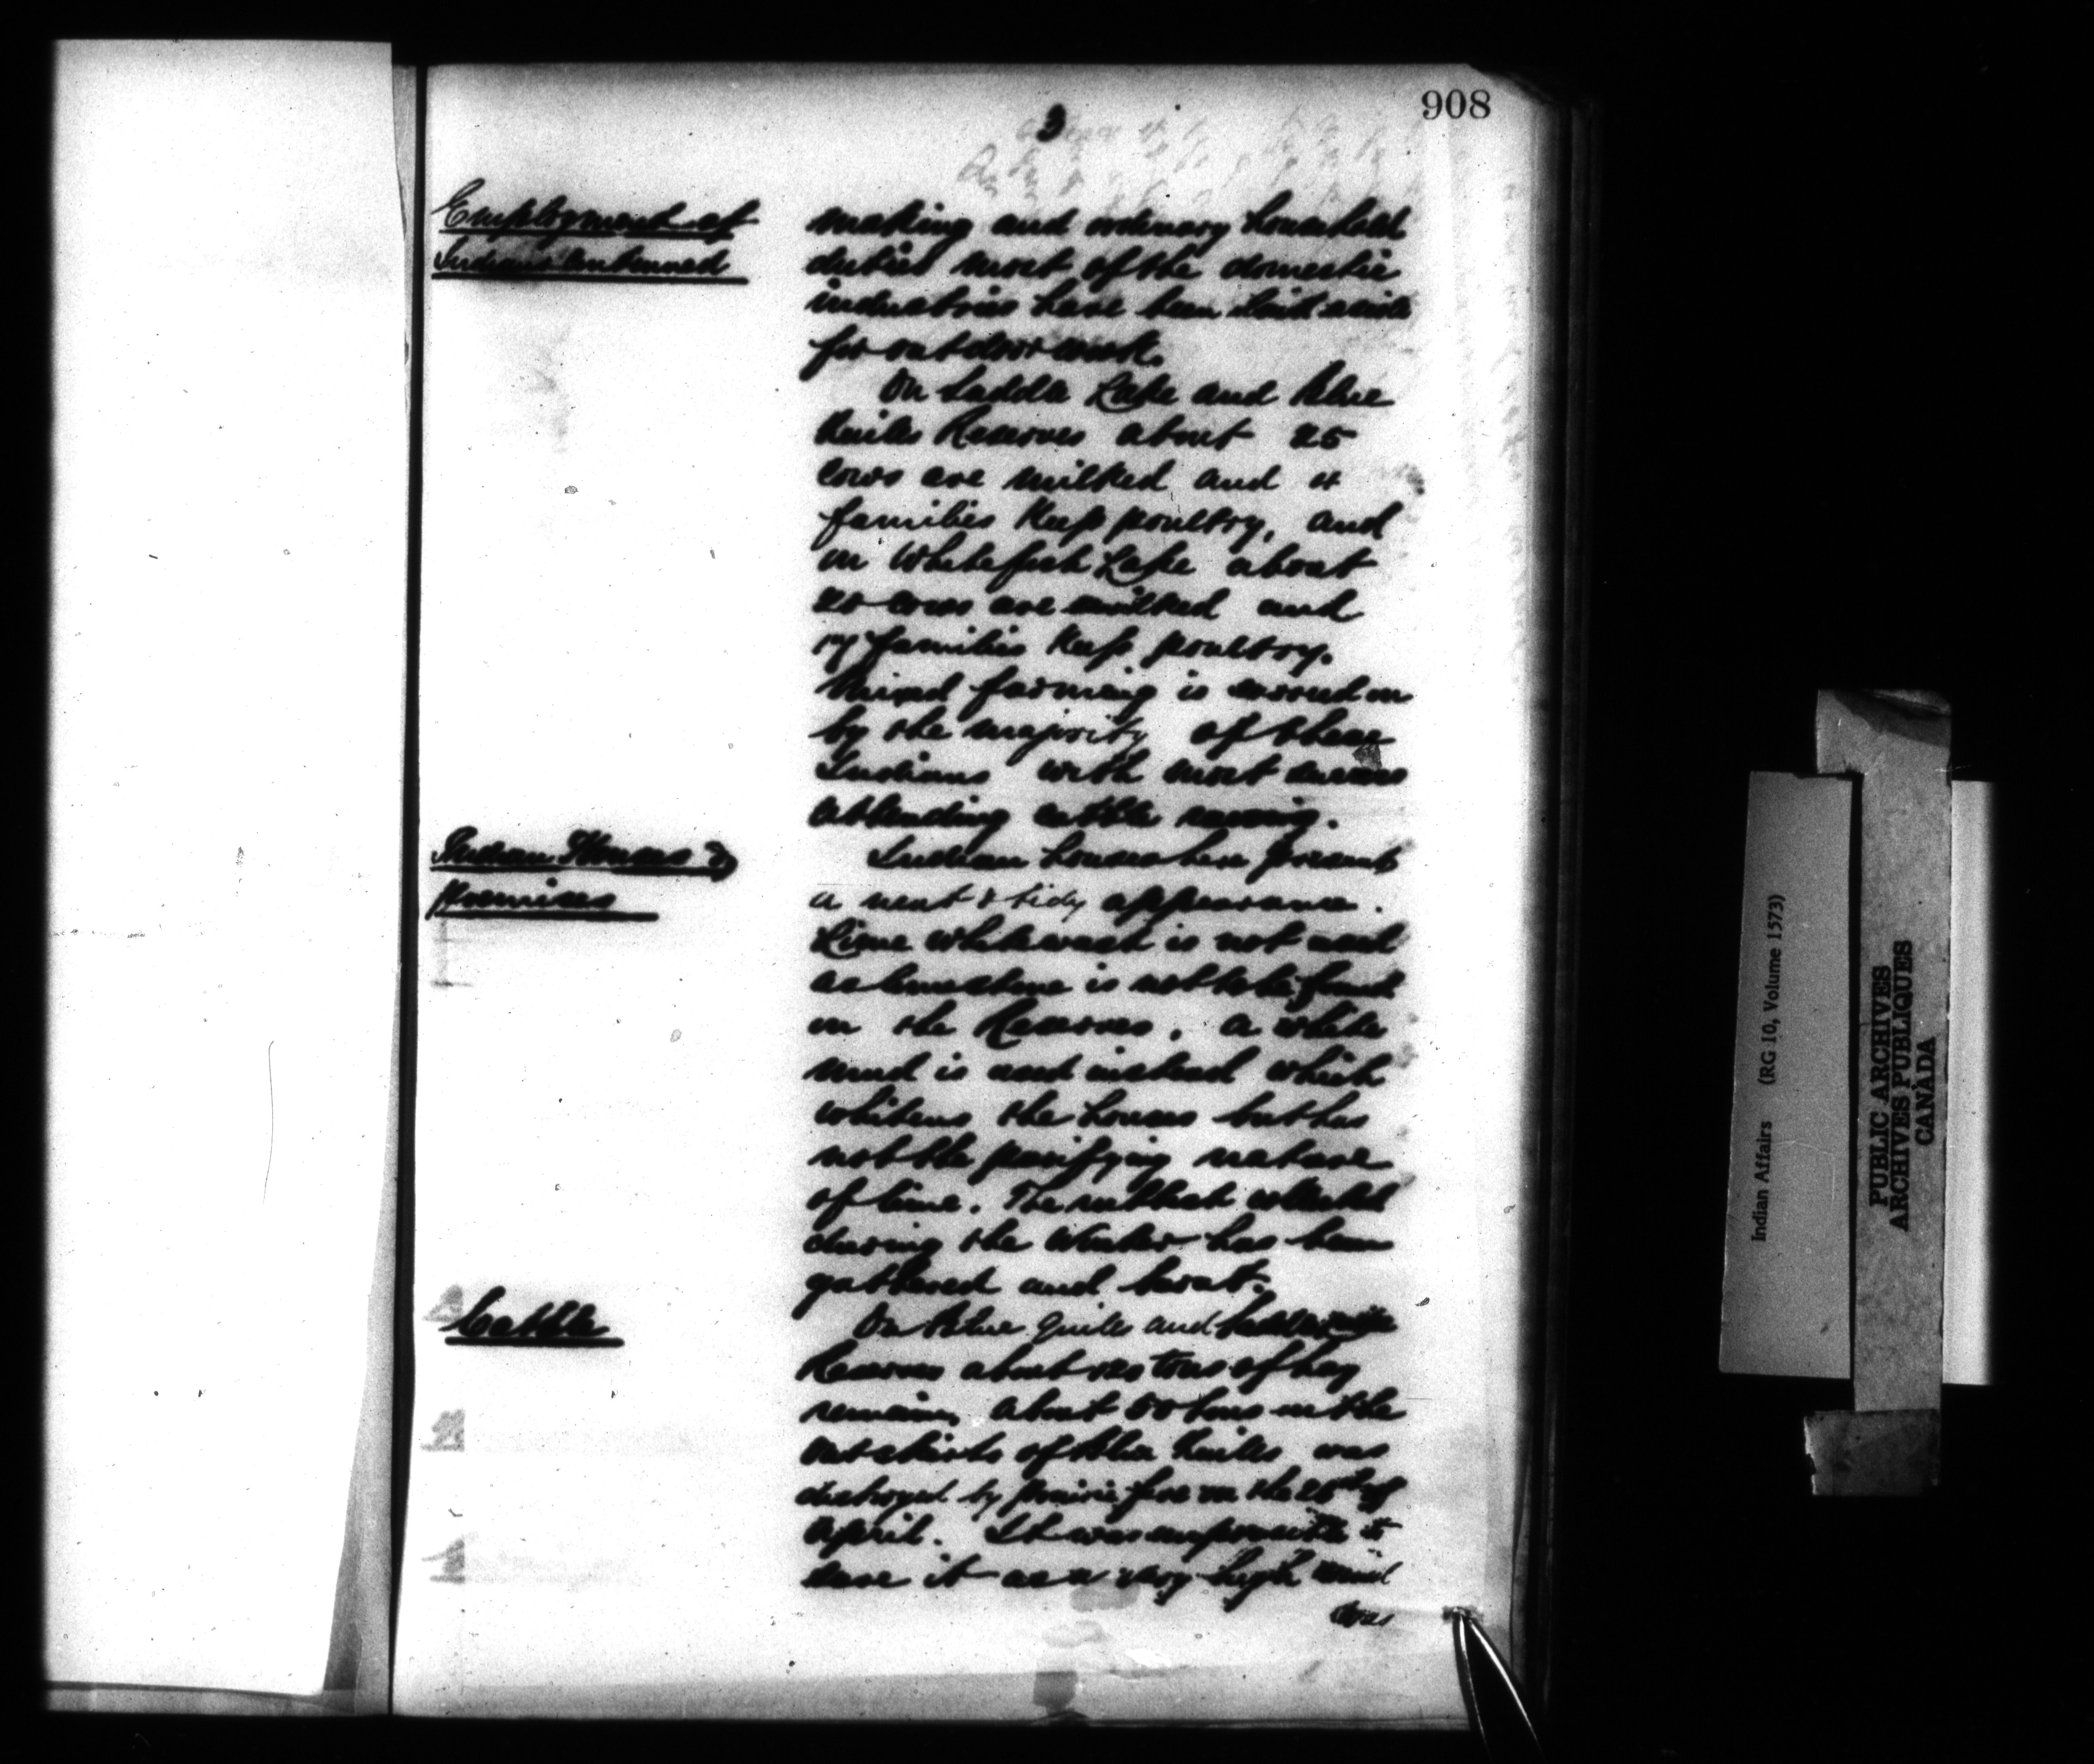 908
3
Employment of
Indians Continued
making and ordinary household
duties most of the domestic
industries have been laid aside
for outdoor work.
On Saddle Lake and Blue
Quills Reserves about 25
cows are milked and 4
families keep poultry, and
on Whitefish Lake about
20 cows are milked and
17 families keep poultry.
Mixed farming is carried on
by the majority of these
Indians with most success
attending cattle raising.
Indian Houses &
Premises
Indian houses here present
a neat & tidy appearance.
Lime whitewash is not used
as limestone is not to be found
on the Reserves. A white
mud is used instead which
whitens the houses but has
not the purifying nature
of lime. The rubbish collected
during the Winter has been
gathered and burnt.
Cattle
On Blue Quills and Saddle Lake
Reserves about tons of hay
remain, about 50 tons on the
outskirts of Blue Quills was
destroyed by prairie fire on the 25th of
April. It was impossible to
save it as a very high wind
was
Indian Affairs (RG 10, Volume 1573)
PUBLIC ARCHIVES
ARCHIVES PUBLIQUES
CANADA